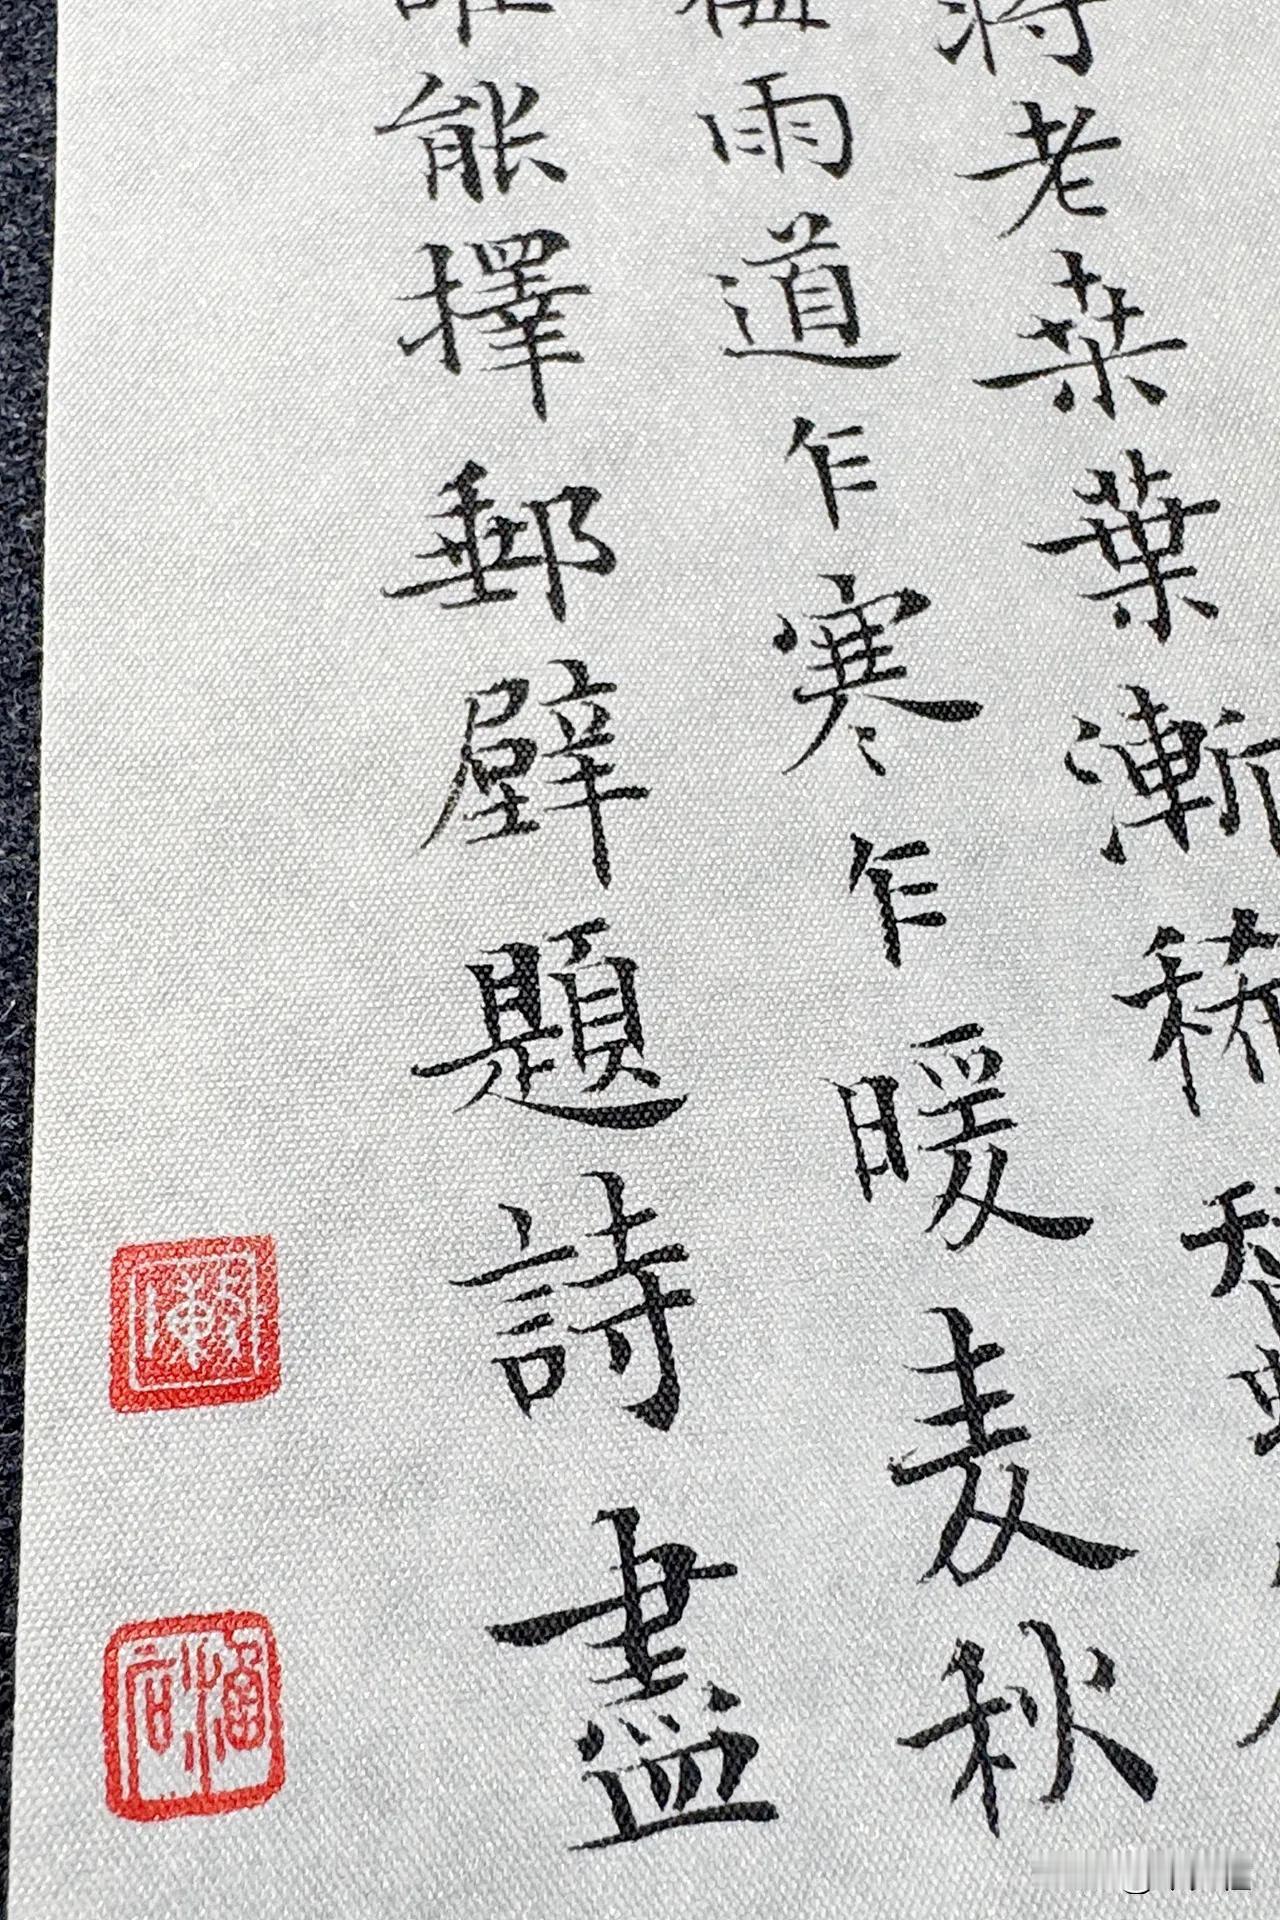 將老桒葉漸稀
雨道乍寒乍暖麦秋
能擇郵壁題詩盡